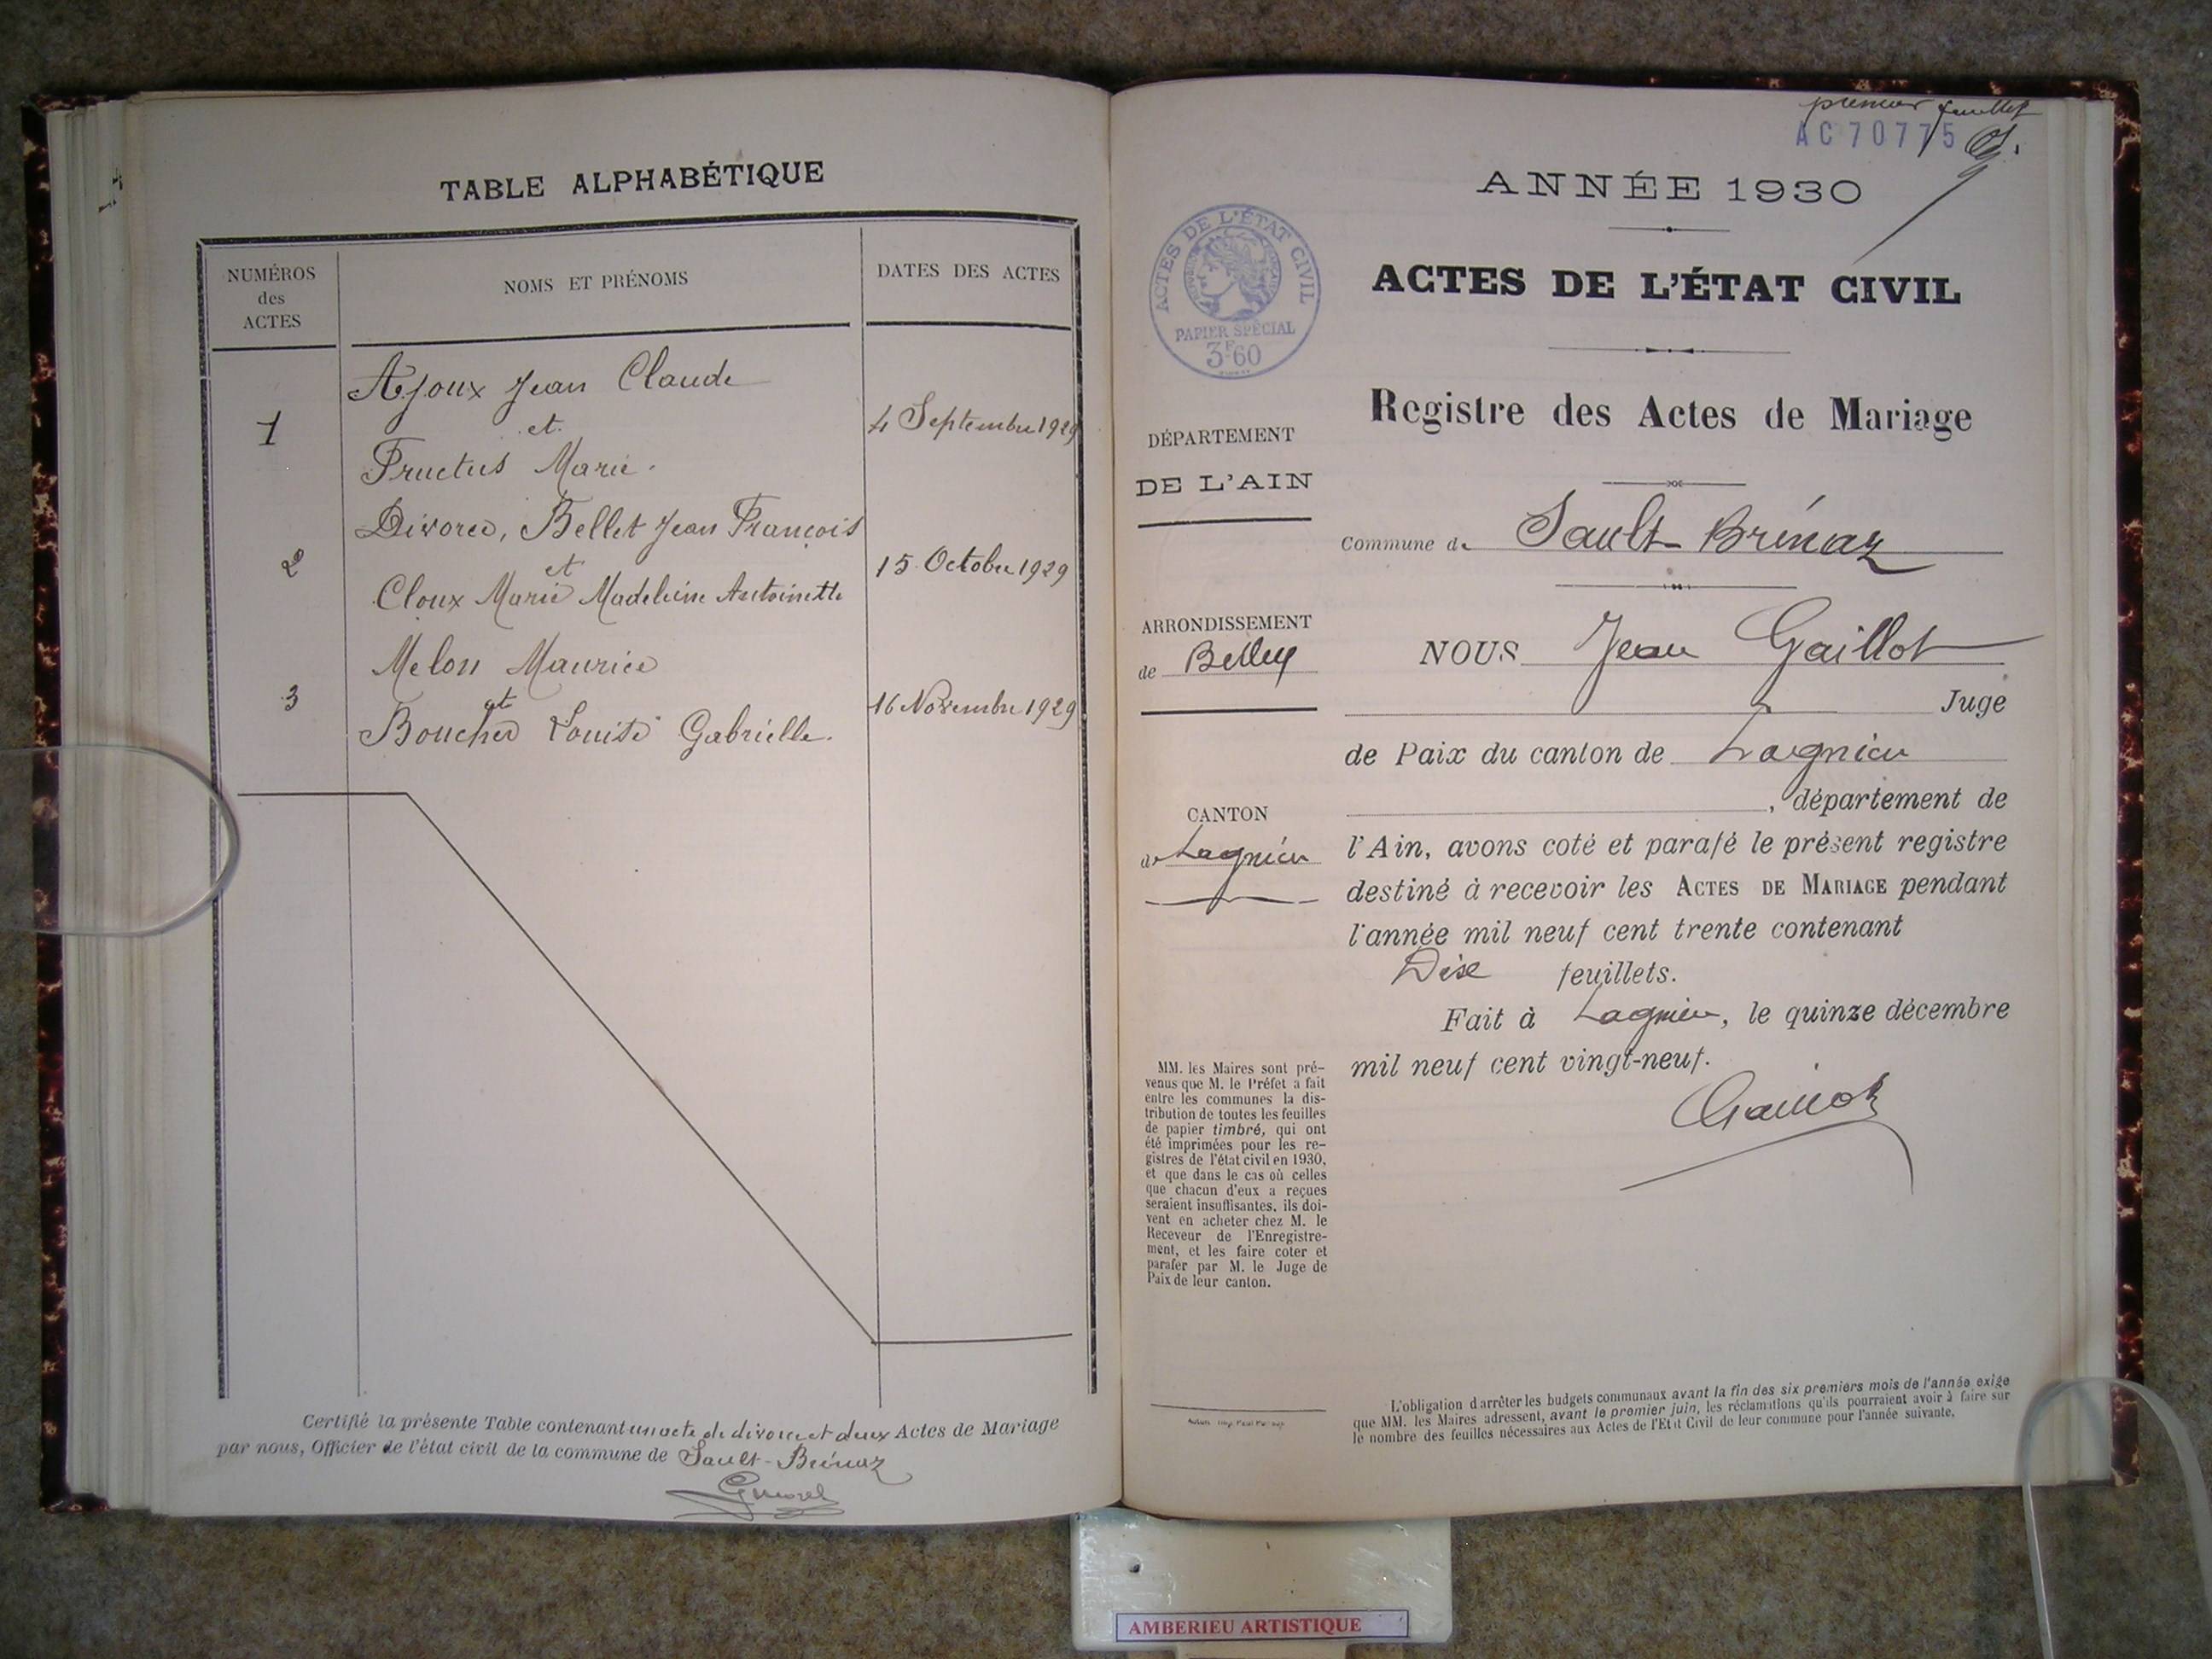 TABLE ALPHABÉTIQUE
NUMÉROS
des
ACTES
NOMS ET PRÉNOMS
DATES DES ACTES
Ajoux Jean Claude
1
et
4 Septembre 1929
Fructus Marie.
Divorce, Bellet Jean François
2
et
15 Octobre 1929
Cloux Marie Madeleine Antoinette
Melon Maurice
3
et
16 Novembre 1929
Boucher Louise Gabrielle.
Certifié la présente Table contenant un acte de divorce et deux Actes de Mariage
par nous, Officier de l'état civil de la commune de Sault-Brénaz
premier feuillet
AC 70775
ANNÉE 1930
ACTES DE L'ÉTAT CIVIL
PAPIER SPÉCIAL
3F60
ACTES DE L'ÉTAT CIVIL
Registre des Actes de Mariage
DÉPARTEMENT
DE L'AIN
Commune de Sault-Brénaz
ARRONDISSEMENT
de Belley
NOUS Jean Gaillot
Juge
de Paix du canton de Lagnieu
, département de
CANTON
de Lagnieu
l'Ain, avons coté et parafé le présent registre
destiné à recevoir les ACTES DE MARIAGE pendant
l'année mil neuf cent trente contenant
Dix feuillets.
Fait à Lagnieu, le quinze décembre
mil neuf cent vingt-neuf.
Gaillot
MM. les Maires sont pré-
venus que M. le Préfet a fait
entre les communes la dis-
tribution de toutes les feuilles
de papier timbré, qui ont
été imprimées pour les re-
gistres de l'état civil en 1930,
et que dans le cas où celles
que chacun d'eux a reçues
seraient insuffisantes, ils doi-
vent en acheter chez M. le
Receveur de l'Enregistre-
ment, et les faire coter et
parafer par M. le Juge de
Paix de leur canton.
L'obligation d'arrêter les budgets communaux avant la fin des six premiers mois de l'année exige
que MM. les Maires adressent, avant le premier juin, les réclamations qu'ils pourraient avoir à faire sur
le nombre des feuilles nécessaires aux Actes de l'Etat Civil de leur commune pour l'année suivante.
AMBERIEU ARTISTIQUE